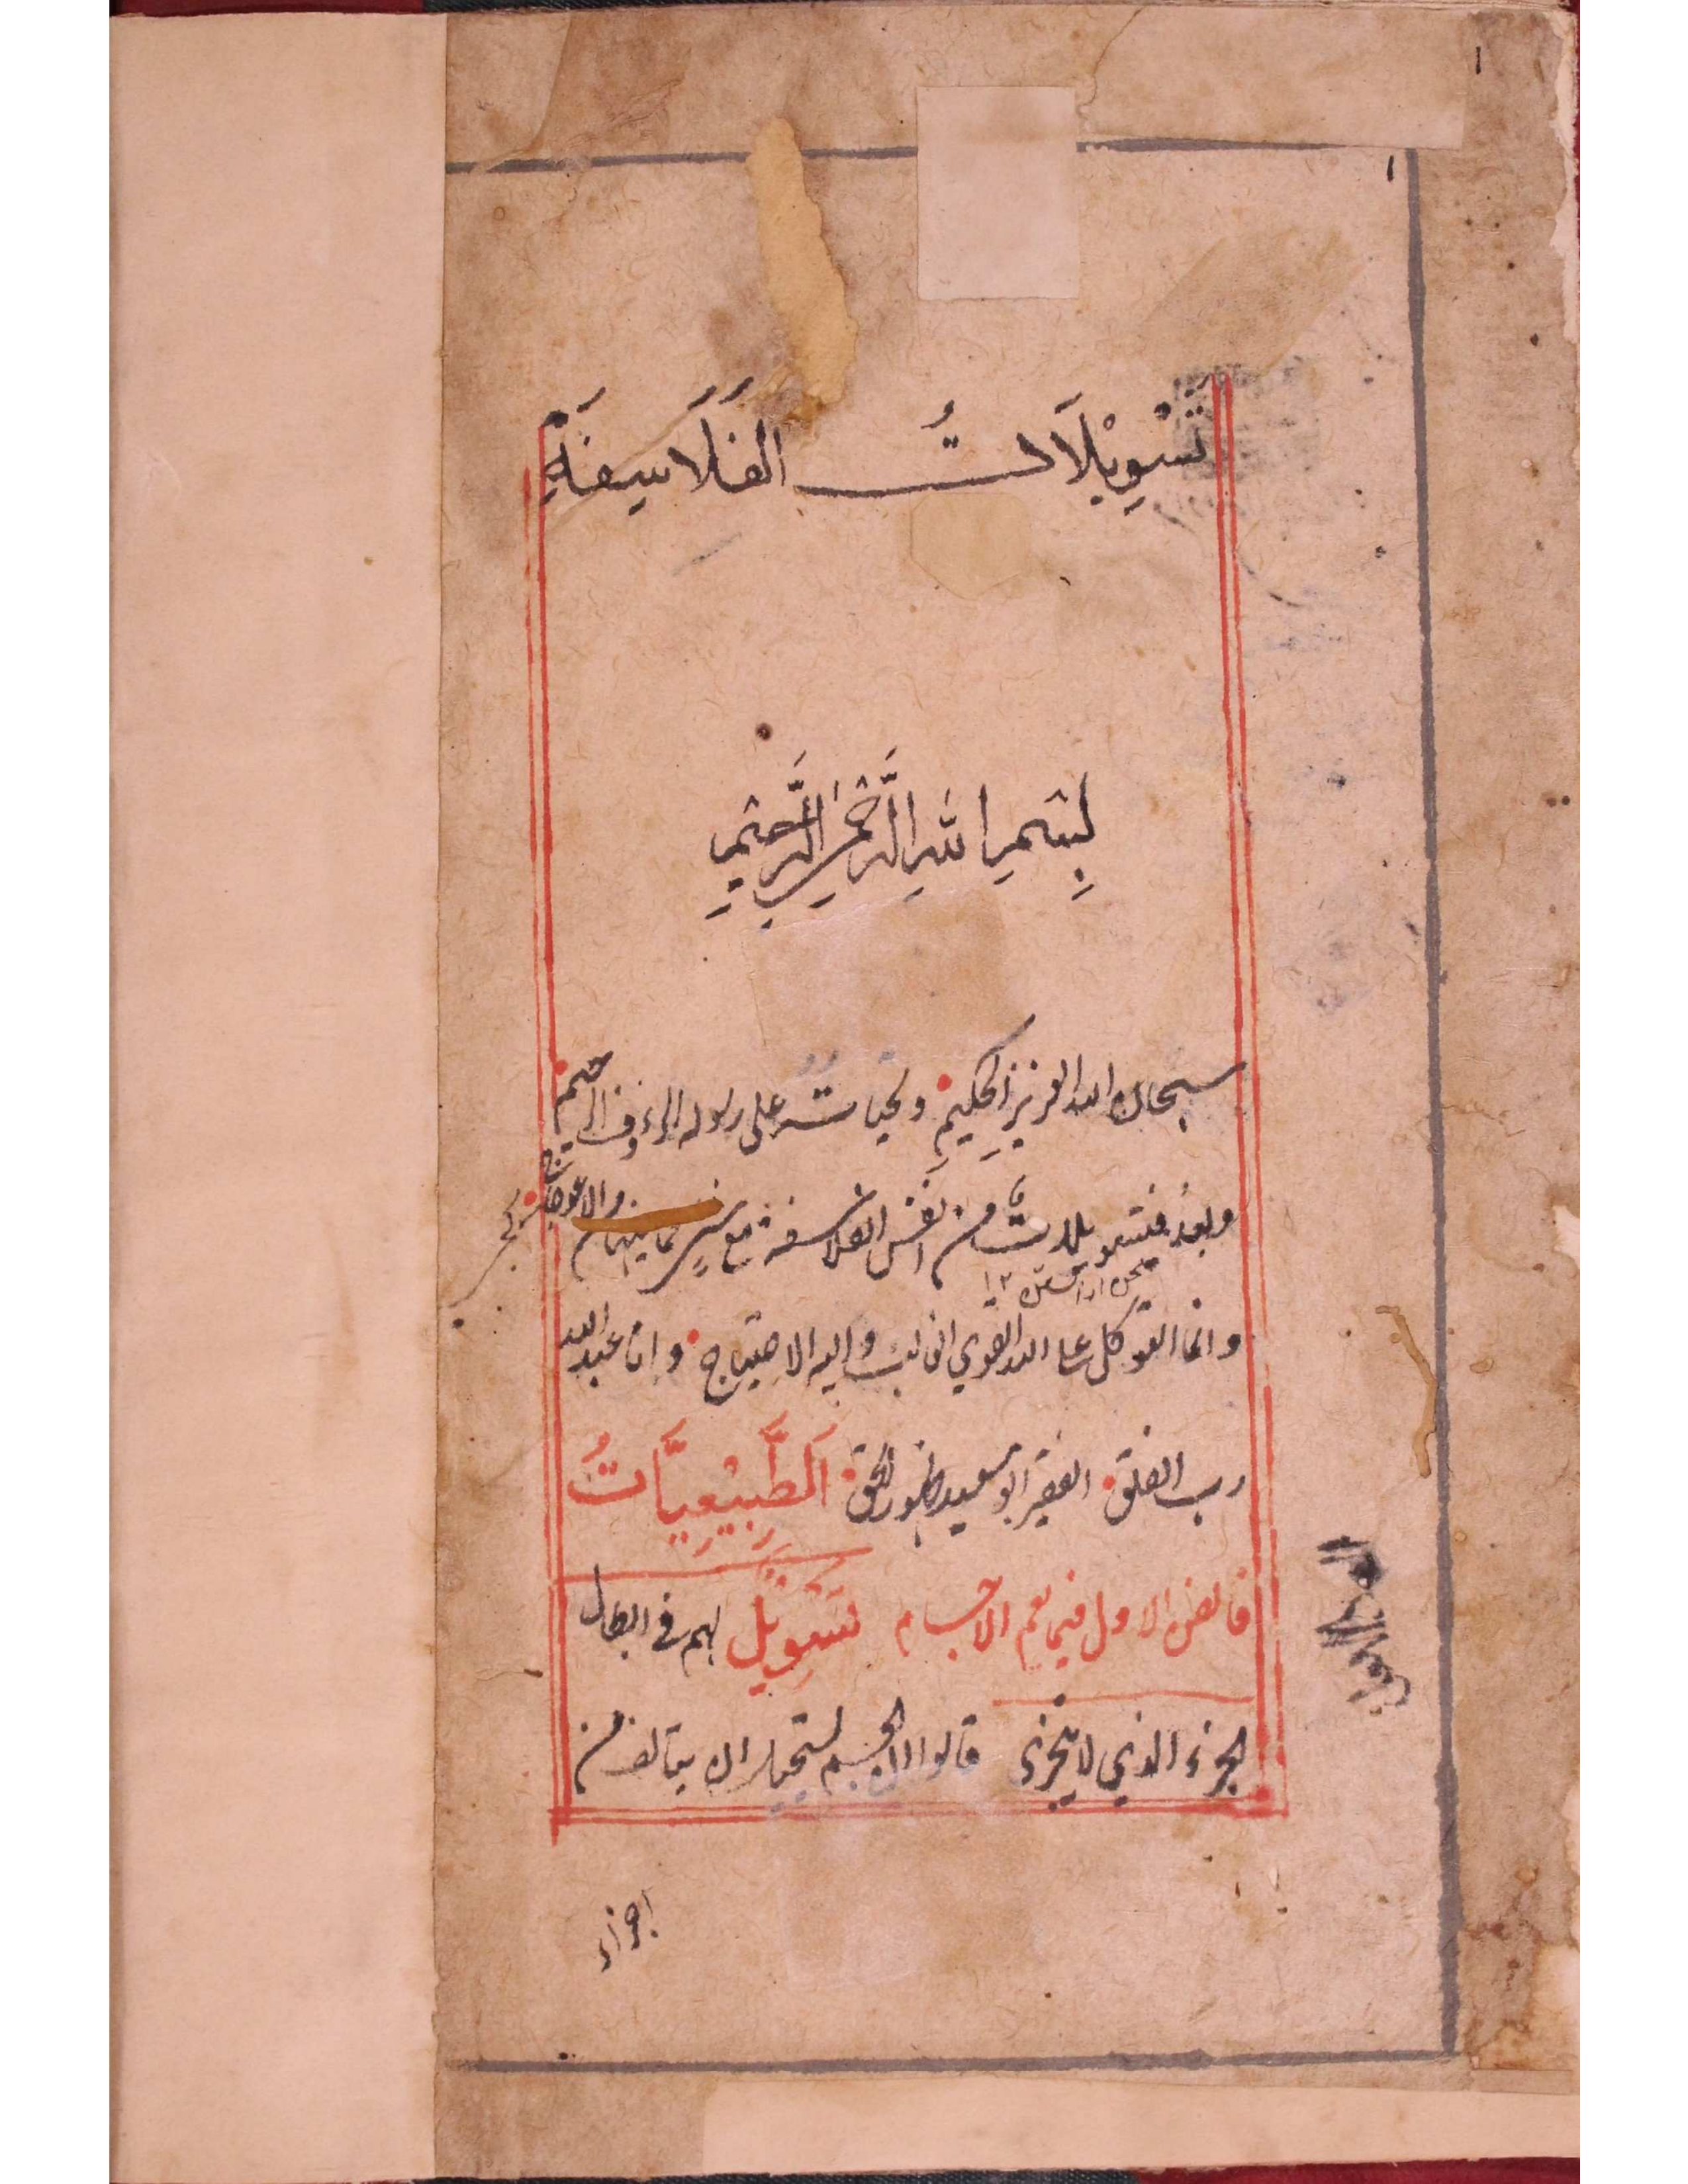 ١
١
تَسْوِيْلَاتُ الفَلَاسِفَةِ
بِسْمِ اللهِ الرَّحْمٰنِ الرَّحِيْمِ
سبحان الله العزيز الحكيم وتحيات على رسوله الرءوف الرحيم
وبعد فتسويلات من انفس الفلاسفة مع والاعوجاج
١٢
وانما التوكل على الله القوي الغالب واليه الاحتياج وانا عبد الله
رب الفلق الفقير ابو سعيد ظهور الحق اَلطَّبِيْعِيَّاتُ
فالفن الاول فيما يعم الاجسام تَسْوِيْلٌ لهم في ابطال
الجزء الذي لا يتجزى قالوا ان الجسم يستحيل ان يتالف من
اجزاء